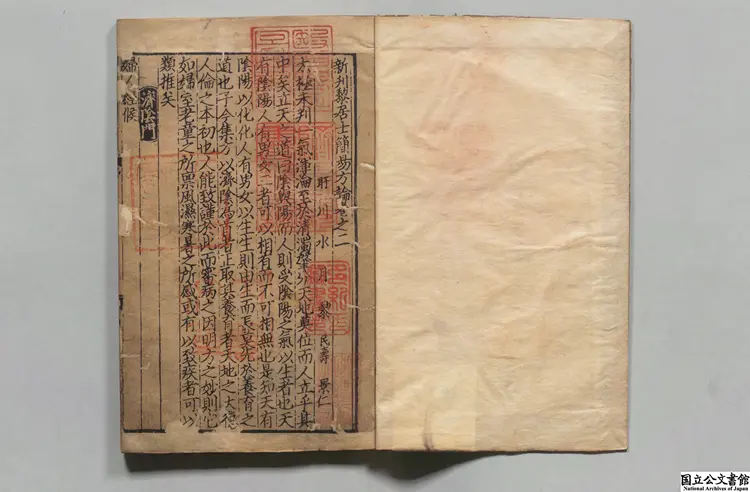 新刋黎居士簡易方論卷之二
旴川水月黎民壽景仁
太極未判一氣渾淪至於清濁肇分天地奠位而人立乎其
中矣立天之道曰陰與陽而人則受陰陽之氣以生者也天
有陰陽人有男女二者可以相有而不可相無也是知天有
陰陽以化化人有男女以生生則由生而長莫先於養育之
道也予今集方以濟陰爲首者正取其養育者天地之大德
人倫之本初也人能致謹於此而靈病之因明方之越則心
如婦室老童之所禀風濕寒暑之所感或有以致疾者可以
類推矣
濟陰門
婦人證候
国立公文書館
National Archives of Japan